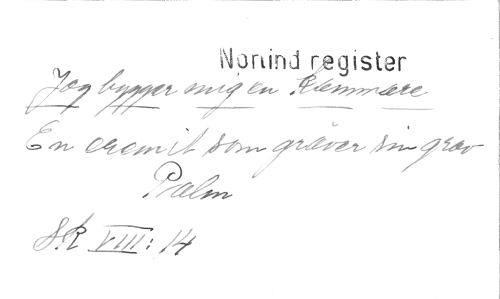 Nonind register
Jag bygger mig en kammare
En eremit som gräver sin grav
Psalm
S.K VIII: 14